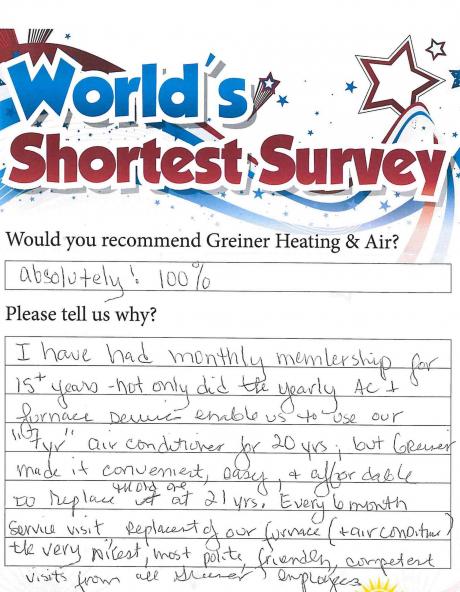 World's
Shortest Survey
Would you recommend Greiner Heating & Air?
absolutely! 100%
Please tell us why?
I have had monthly membership for
15+ years - not only did the yearly AC +
furnace service enable us to use our
yr" air conditioner for 20 yrs; but Greiner
made it convenient, easy, + affordable
to replace at 21 yrs. Every 6 month
service visit replacement of our furnace (+ air conditioner)
the very nicest, most polite, friendly, competent
visits from all Greiner employees